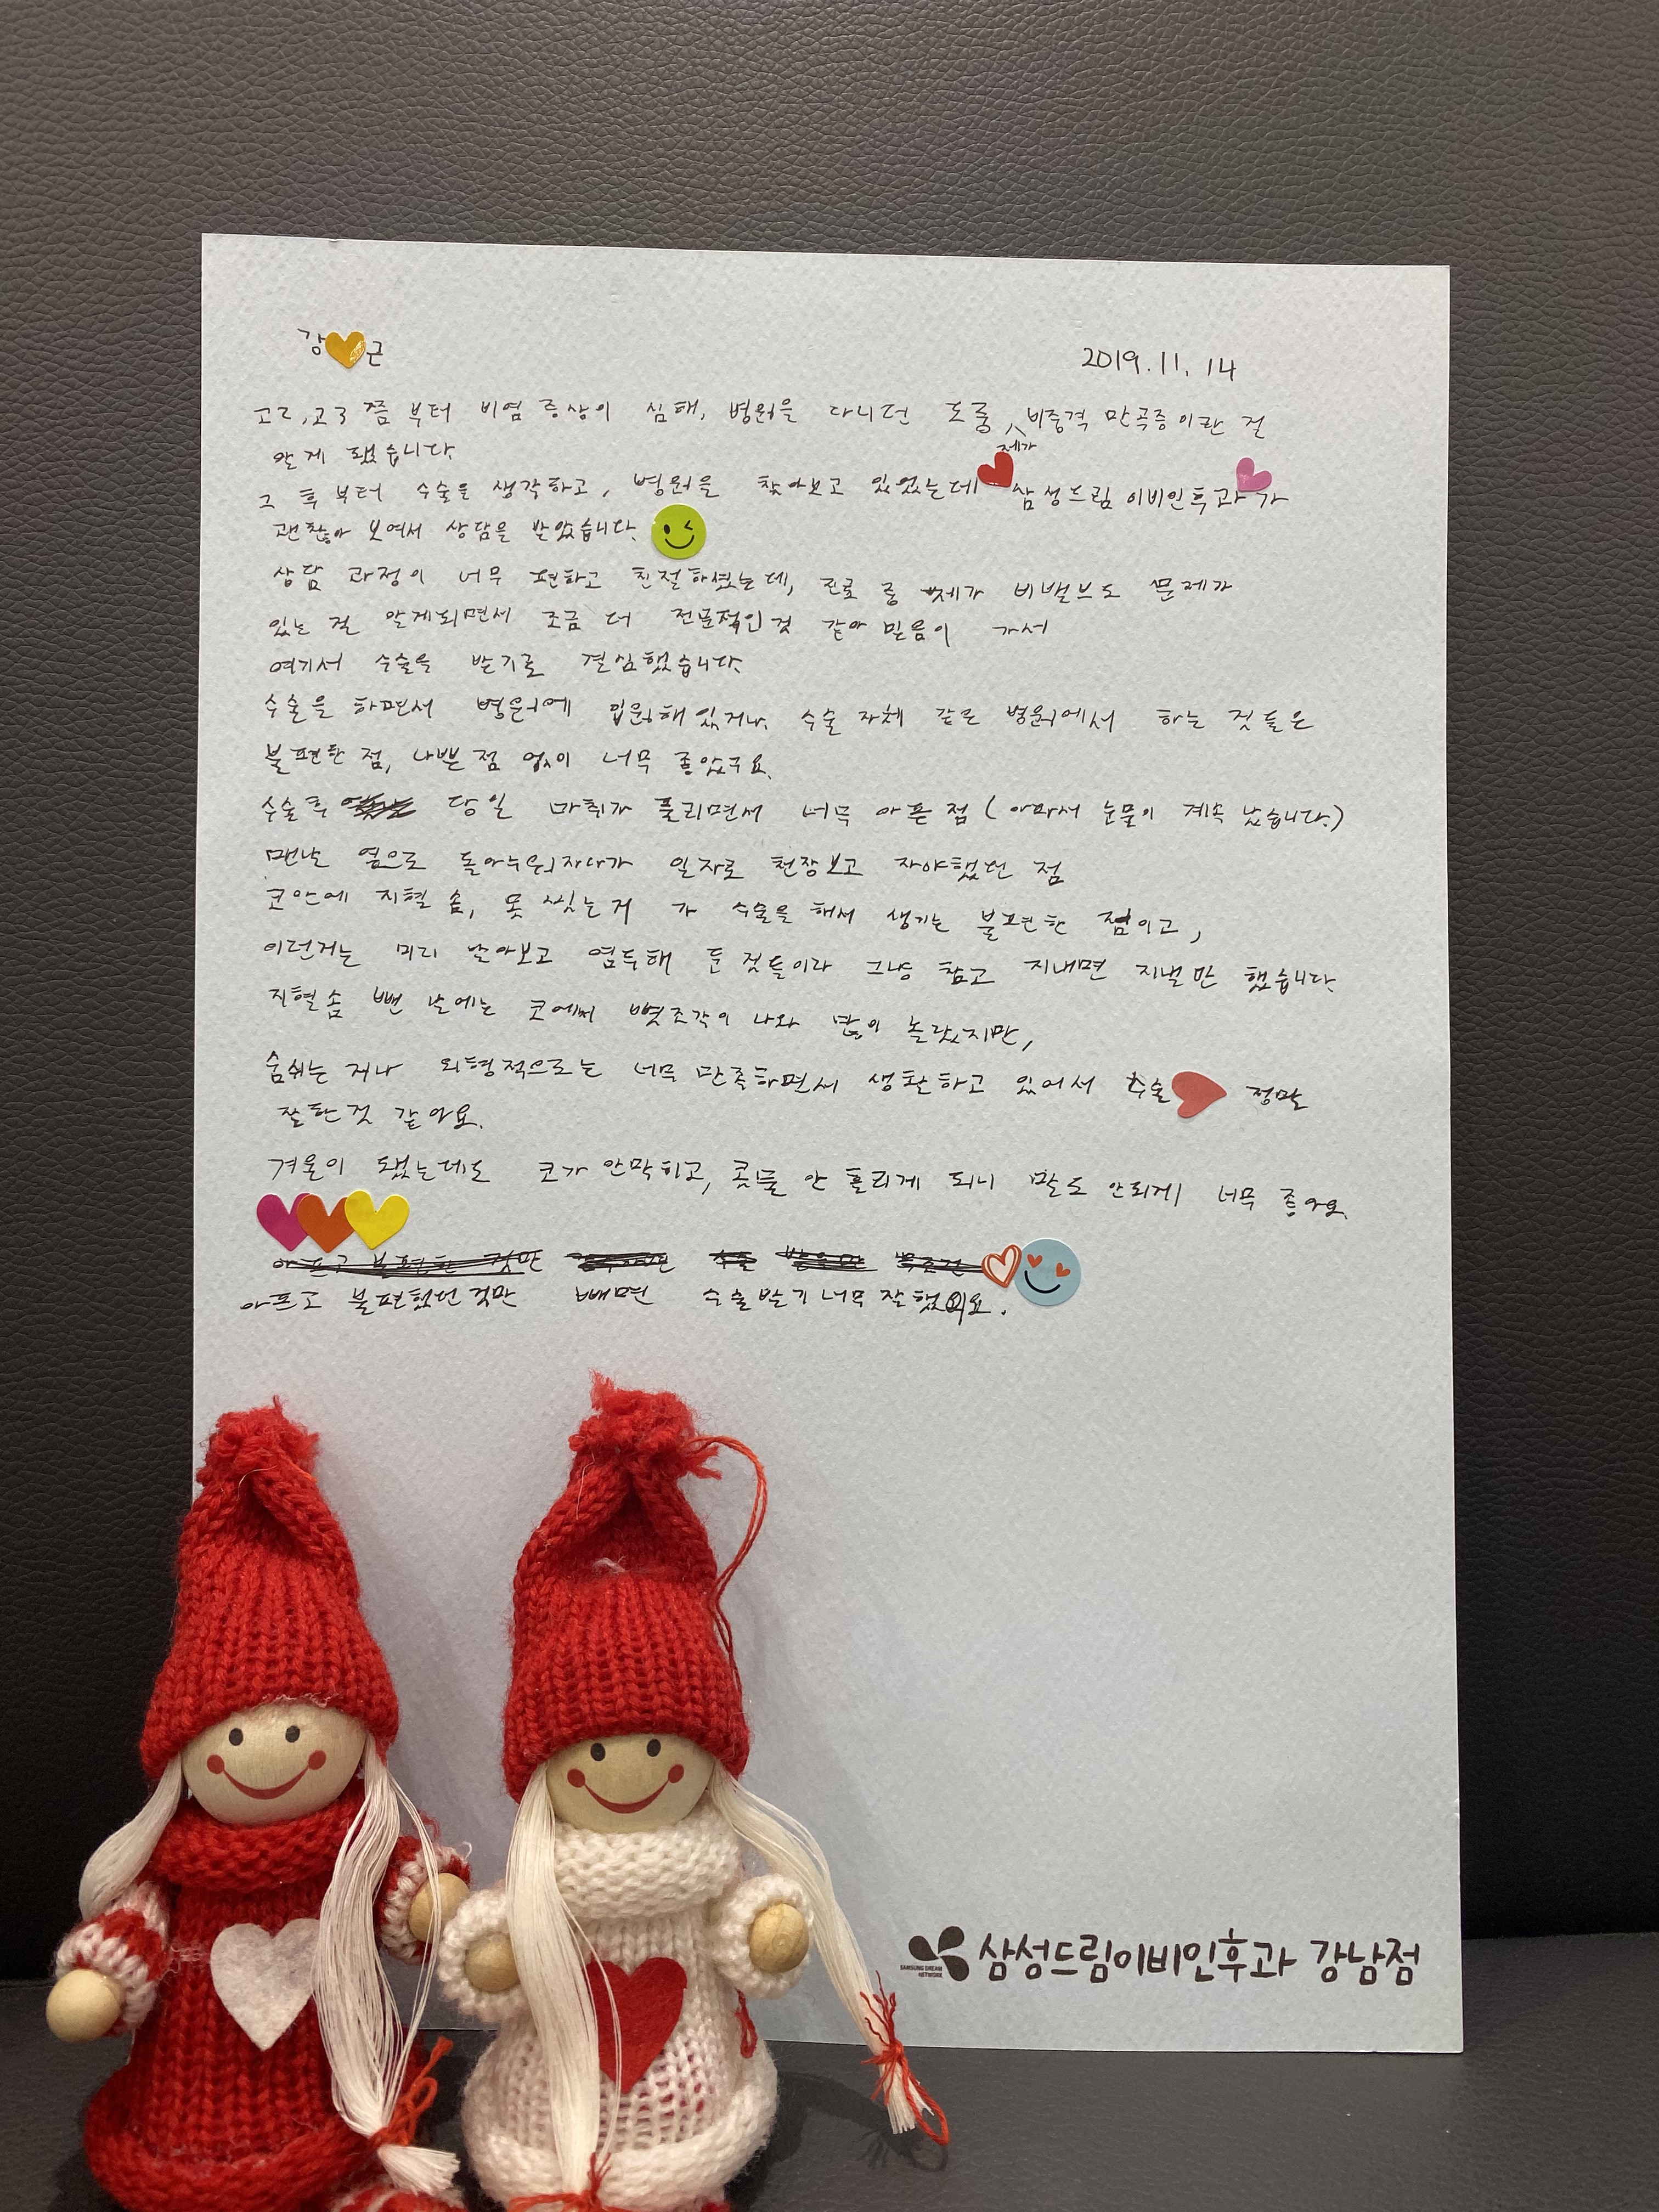 강 근
2019.11.14
고2,고3 쯤 부터 비염 증상이 심해, 병원을 다니던 도중, 제가 비중격 만곡증이란 걸
알게 됐습니다
그 후 부터 수술을 생각하고, 병원을 찾아보고 있었는데 삼성드림 이비인후과가
괜찮아 보여서 상담을 받았습니다.
상담 과정이 너무 편하고 친절하셨는데, 진료 중 제가 비밸브도 문제가
있는 걸 알게되면서 조금 더 전문적인것 같아 믿음이 가서
여기서 수술을 받기로 결심했습니다.
수술을 하면서 병원에 입원해 있거나, 수술 자체 같은 병원에서 하는 것들은
불편한 점, 나쁜점 없이 너무 좋았구요.
수술 후 당일 마취가 풀리면서 너무 아픈 점 (아파서 눈물이 계속 났습니다.)
맨날 옆으로 돌아누워자다가 일자로 천장보고 자야했던 점
코안에 지혈 솜, 못 씻는거 가 수술을 해서 생기는 불편한 점이고,
이런거는 미리 알아보고 염두해 둔 것들이라 그냥 참고 지내면 지낼만 했습니다.
지혈솜 뺀 날에는 코에서 뼛조각이 나와 많이 놀랐지만,
숨쉬는 거나 외형적으로는 너무 만족하면서 생활하고 있어서 수술 정말
잘한것 같아요.
겨울이 됐는데도 코가 안막히고, 콧물 안 흘리게 되니 말도 안되게 너무 좋아요.
아프고 불편했던 것만 빼면 수술받기 너무 잘했어요.
SAMSUNG DREAM NETWORK
삼성드림이비인후과 강남점